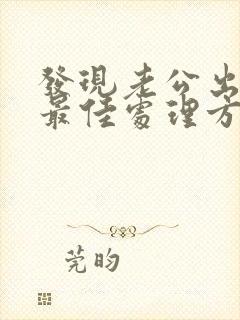 發現老公出
最佳處理方
莞昀